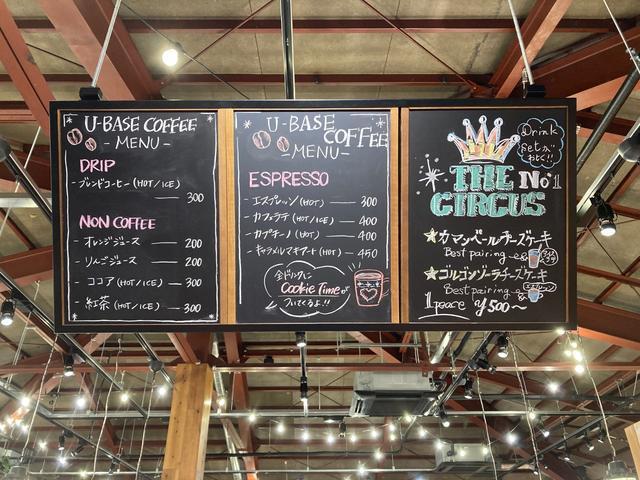 U-BASE COFFEE
- MENU -
DRIP
- ブレンドコーヒー (HOT/ICE)
300
NON COFFEE
- オレンジジュース — 200
- りんごジュース — 200
- ココア (HOT/ICE) — 300
- 紅茶 (HOT/ICE) — 300
U-BASE
COFFEE
- MENU -
ESPRESSO
- エスプレッソ (HOT) — 300
- カフェラテ (HOT/ICE) — 400
- カプチーノ (HOT) — 400
- キャラメルマキアート (HOT) — 450
全ドリンクに
Cookie Time が
ついてくるよ!!
Drink
Setが
おトク!!
THE No.1
CIRCUS
★カマンベールチーズケーキ
Best pairing
★ゴルゴンゾーラチーズケーキ
Best pairing
1peace ¥500〜